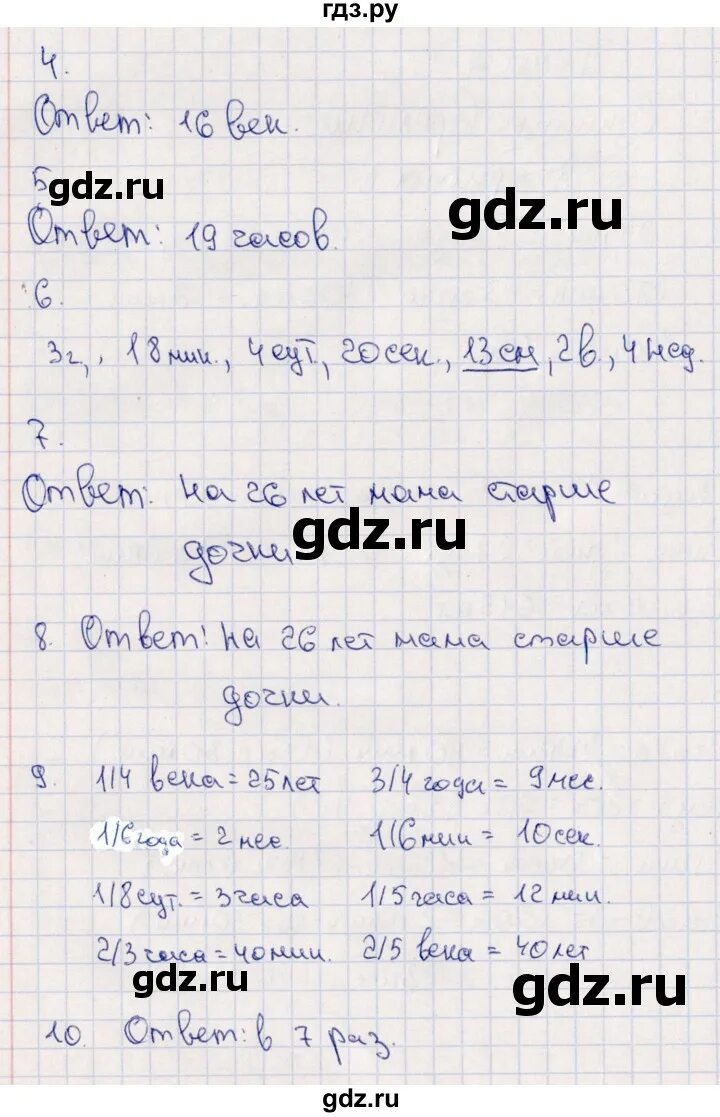 гдз.ру
4.
Ответ: 16 век.
5
gdz.ru
gdz.ru
Ответ: 19 часов.
6.
3г., 18 мин., 4 сут., 20 сек., 13 см, 2 в., 4 нед.
7.
Ответ: на 26 лет мама старше
gdz.ru
дочки
8. Ответ: на 26 лет мама старше
дочки.
9. 1/4 века = 25 лет 3/4 года = 9 мес.
1/6 года = 2 мес. 1/6 мин = 10 сек.
1/8 сут. = 3 часа 1/5 часа = 12 мин.
2/3 часа = 40 мин. 2/5 века = 40 лет
gdz.ru
gdz.ru
10. Ответ: в 7 раз.
gdz.ru